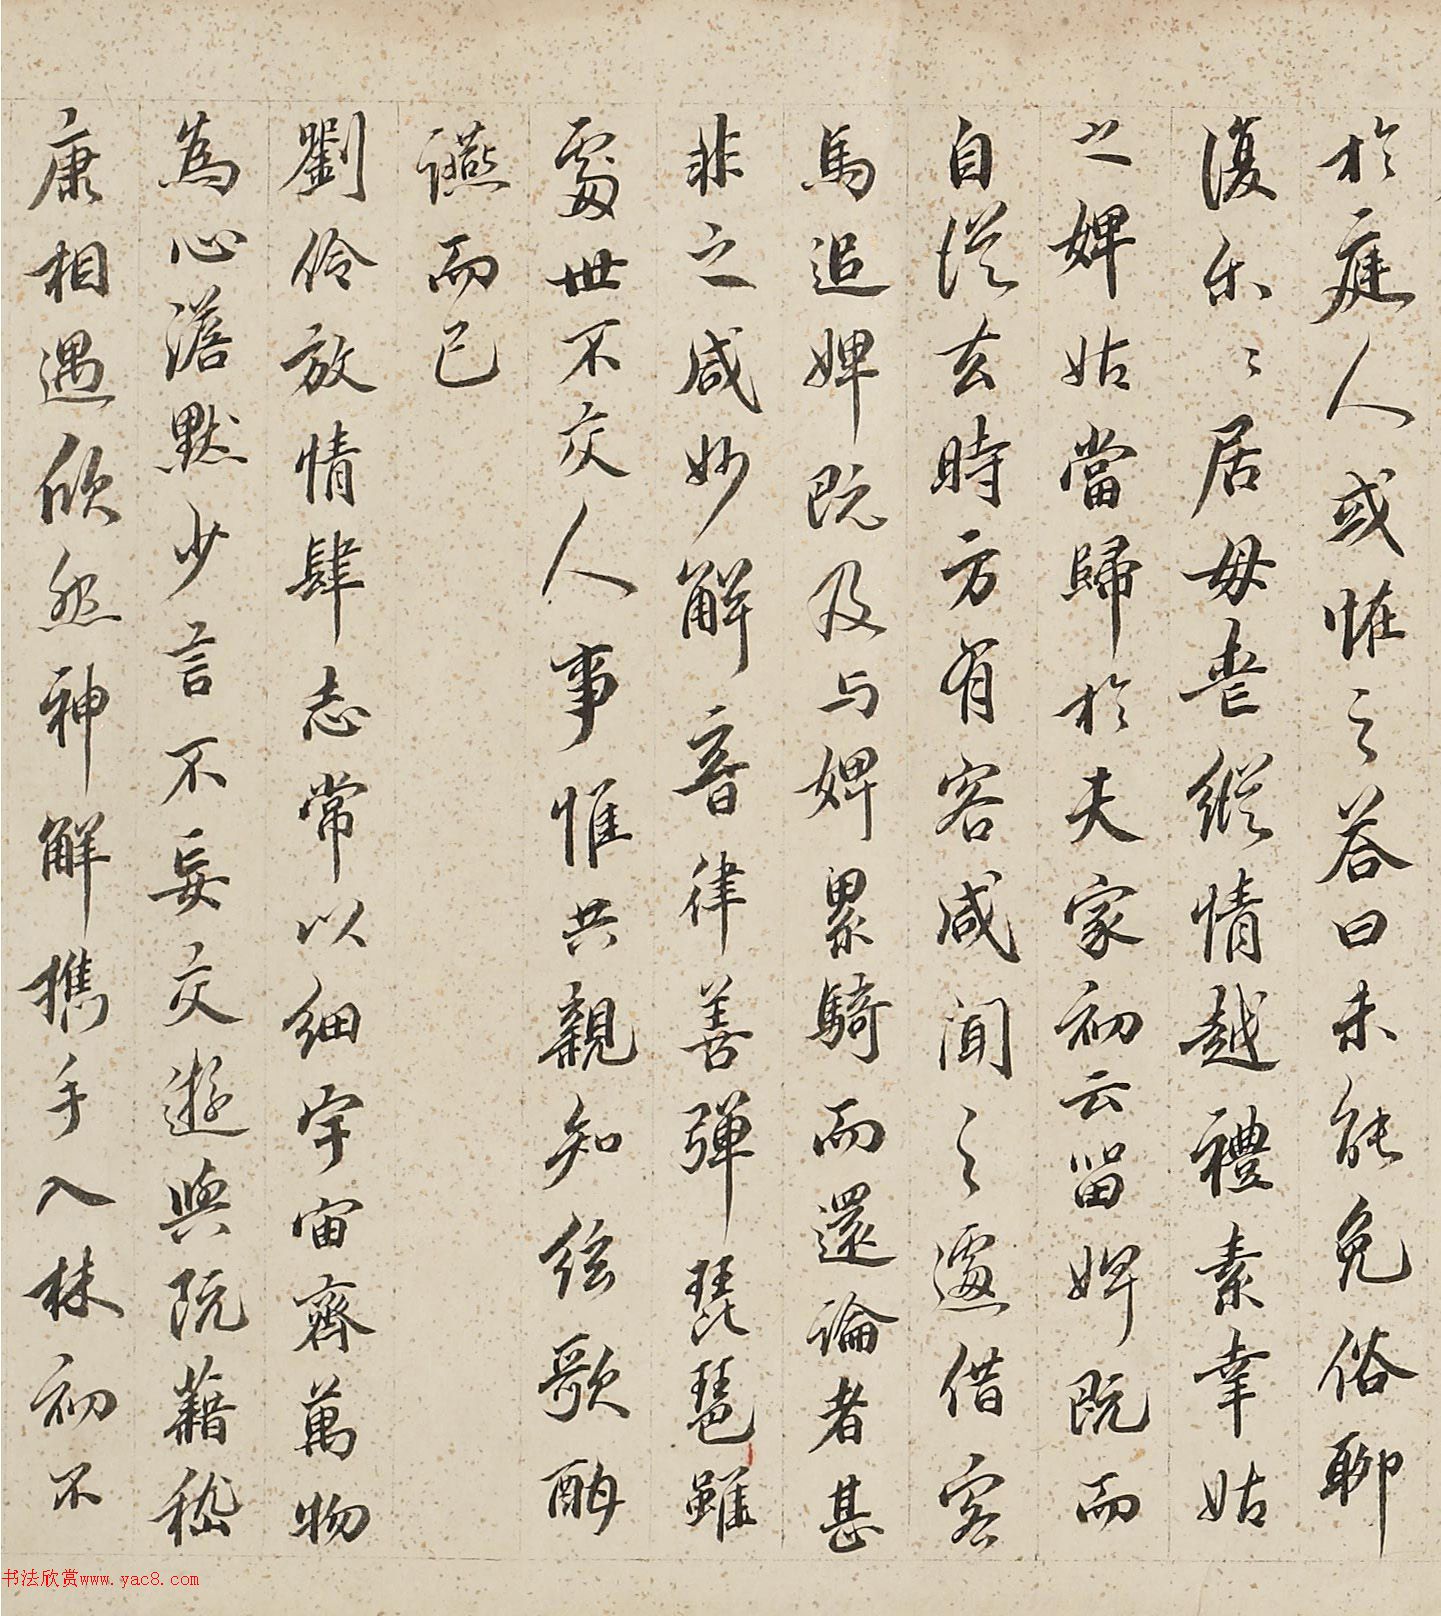 於庭人或怪之答曰未能免俗聊
復尔〻居母喪縱情越禮素幸姑
之婢姑當歸於夫家初云留婢既而
自從去時方有客咸聞之遽借客
馬追婢既及与婢累騎而還論者甚
非之咸妙解音律善彈琵琶雖
處世不交人事惟共親知絃歌酣
讌而已
劉伶放情肆志常以細宇宙齊萬物
為心澹默少言不妄交遊與阮藉嵇
康相遇欣然神解攜手入林初不
书法欣赏www.yac8.com